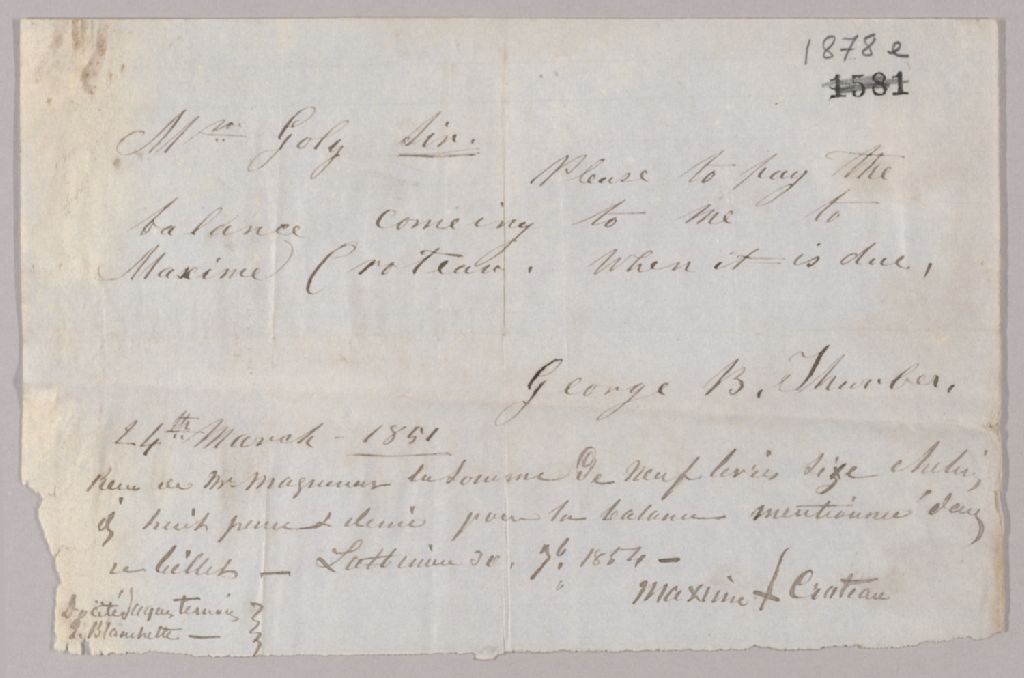 1878 e
1581
Mr Goly Sir.
Please to pay the
balance comeing to me to
Maxime Croteau. When it is due,
George B. Thurber.
24th March - 1851
de Mr la somme De neuf livres size
& huit pence & demie pour la balance mentionnée dans
ce billet — 30. 7b. 1854 —
Maxime + Croteau
Jaques temoin
Blanchette —